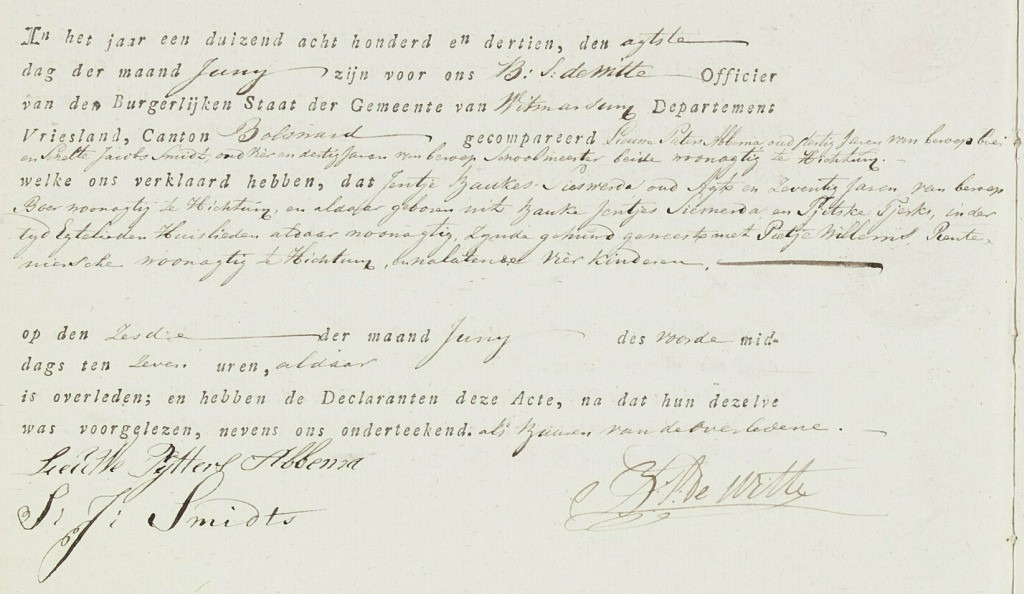 In het jaar een duizend acht honderd en dertien, den agtste
dag der maand Juny zijn voor ons B: S: de Witte Officier
van den Burgerlijken Staat der Gemeente van Witmarsum Departement
Vriesland, Canton Bolsward gecompareerd Lieuwe Piters Abbema, oud dertig Jaren van beroep
en Sjelte Jacobs Smidt, oud vier en dertig Jaren van beroep Schoolmeester beide woonagtig te Hichtum.
welke ons verklaard hebben, dat Jentje Baukes Sieswerda oud Agt en Zeventig Jaren, van beroep
Boer woonagtig te Hichtum, en aldaar geboren uit Bauke Jentjes Siesmerda, en Tjitske Tjerks, in der
tyd Egtelieden Huislieden aldaar woonagtig, Zynde gehuwd geweest met Pietje Willems, Rente,
niersche woonagtig te Hichtum, en nalatende vier kinderen,
op den Zesde der maand Juny des voorde mid-
dags ten Zeven uren, aldaar
is overleden; en hebben de Declaranten deze Acte, na dat hun dezelve
was voorgelezen, nevens ons onderteekend. als Buuren van de overledene.
Lieuwe Pytters Abbema
S: J: Smidts
B. S. De Witte